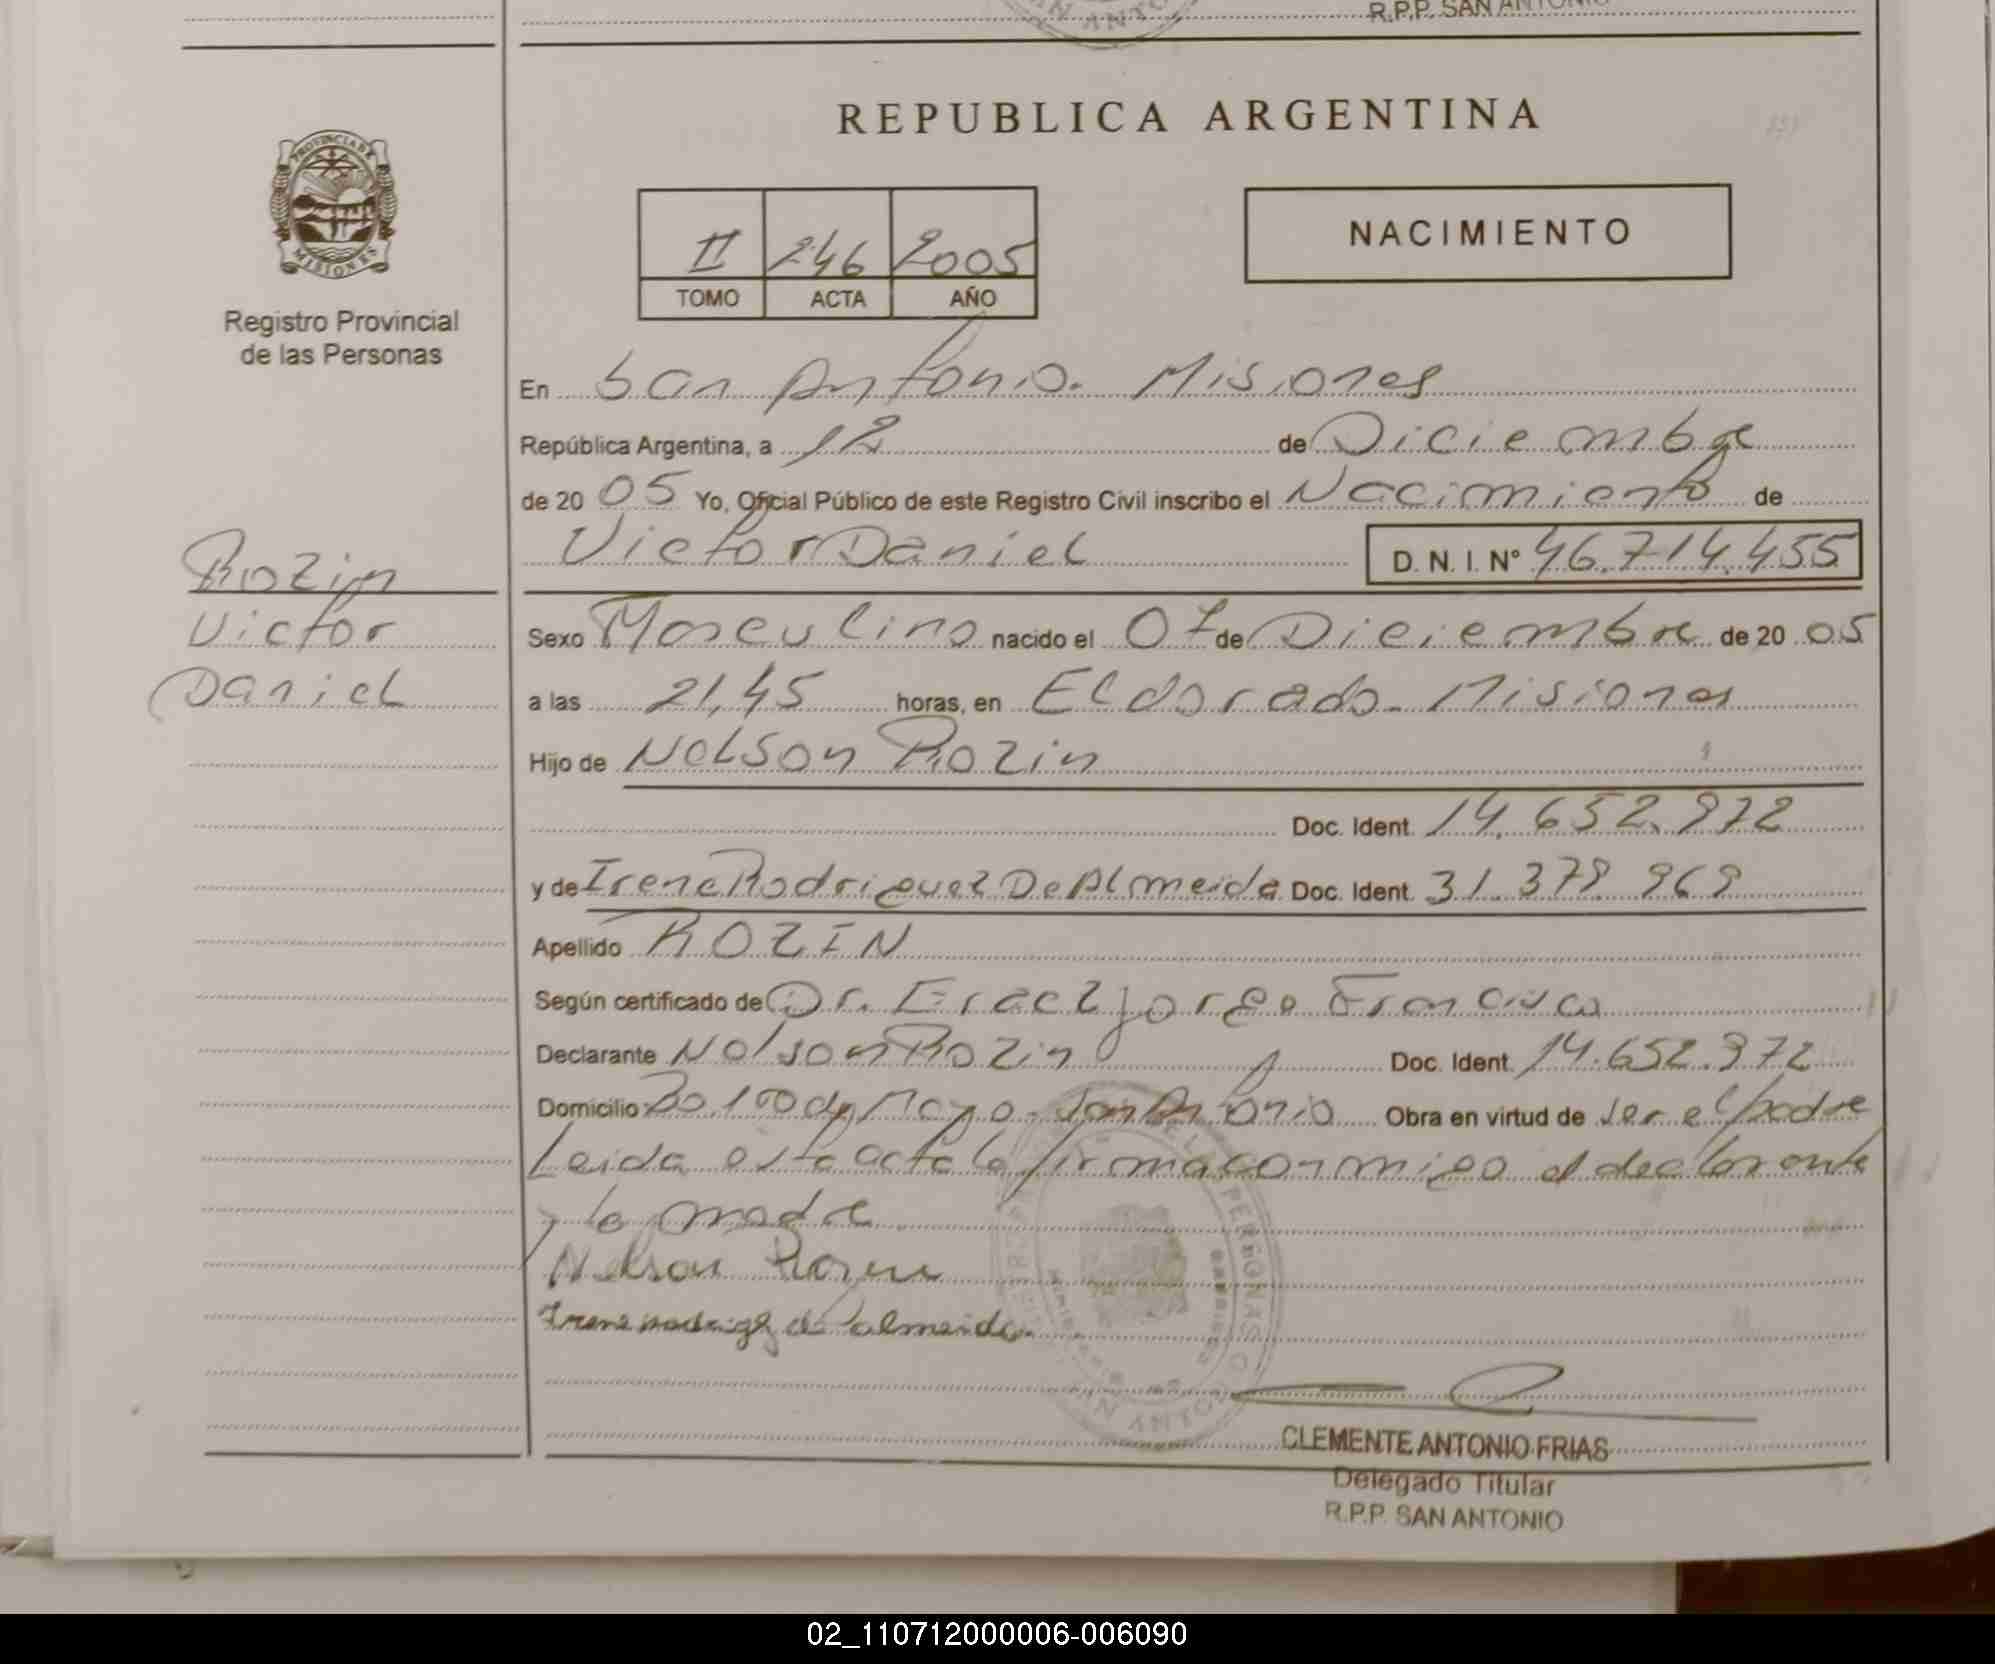 R.P.P. SAN ANTONIO
REPUBLICA ARGENTINA
PROVINCIA DE
MISIONES
Registro Provincial
de las Personas
II 246 2005
TOMO ACTA AÑO
NACIMIENTO
En San Antonio. Misiones
República Argentina, a 12 de Diciembre
de 20 05 Yo, Oficial Público de este Registro Civil inscribo el Nacimiento de
Victor Daniel D. N. I. Nº 46.714.455
Rozin
Victor
Daniel
Sexo Masculino nacido el 07 de Diciembre de 20 05
a las 21,45 horas, en Eldorado. Misiones
Hijo de Nelson Rozin
Doc. Ident. 14.652.972
y de Irene Rodriguez De Almeida Doc. Ident. 31.379.969
Apellido ROZIN
Según certificado de Dr. Jorge
Declarante Nelson Rozin Doc. Ident. 14.652.972
Domicilio de Mayo. San Antonio Obra en virtud de ser el padre
Leida esta acta la firma conmigo el declarante
y la madre
Nelson Rozin
Irene de almeida
CLEMENTE ANTONIO FRIAS
Delegado Titular
R.P.P. SAN ANTONIO
02_110712000006-006090